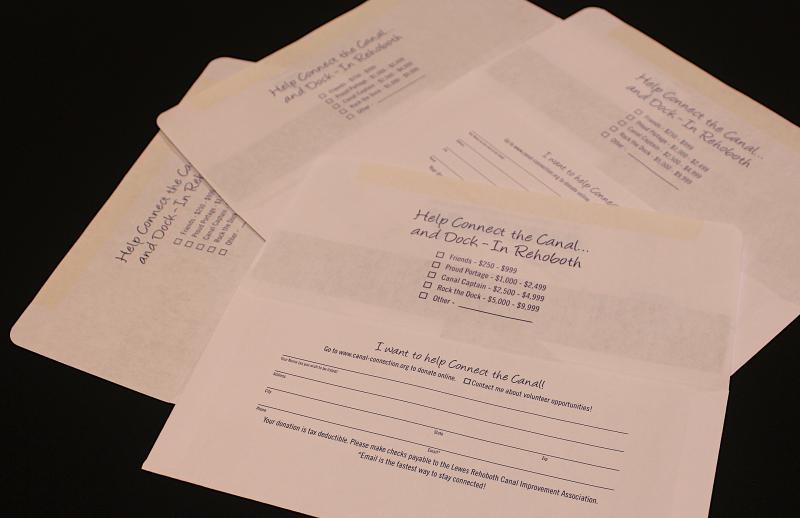 Help Connect the Canal...
and Dock - In Rehoboth
Friends - $250 - $999
Proud Portage - $1,000 - $2,499
Canal Captain - $2,500 - $4,999
Rock the Dock - $5,000 - $9,999
Other -
Help Connect the Canal...
and Dock - In Rehoboth
Friends - $250 - $999
Proud Portage - $1,000 - $2,499
Canal Captain - $2,500 - $4,999
Rock the Dock - $5,000 - $9,999
Other -
I want to help Connec
Go to www.canal-connection.org to donate online
Help Connect the Ca
and Dock - In Reh
Friends - $250 - $9
Proud Portage
Canal Captain
Rock the Dock
Other -
Help Connect the Canal...
and Dock - In Rehoboth
Friends - $250 - $999
Proud Portage - $1,000 - $2,499
Canal Captain - $2,500 - $4,999
Rock the Dock - $5,000 - $9,999
Other -
I want to help Connect the Canal!
Go to www.canal-connection.org to donate online. Contact me about volunteer opportunities!
Your Name (as you wish to be listed)
Address
City State Zip
Phone Email*
Your donation is tax deductible. Please make checks payable to the Lewes Rehoboth Canal Improvement Association.
*Email is the fastest way to stay connected!